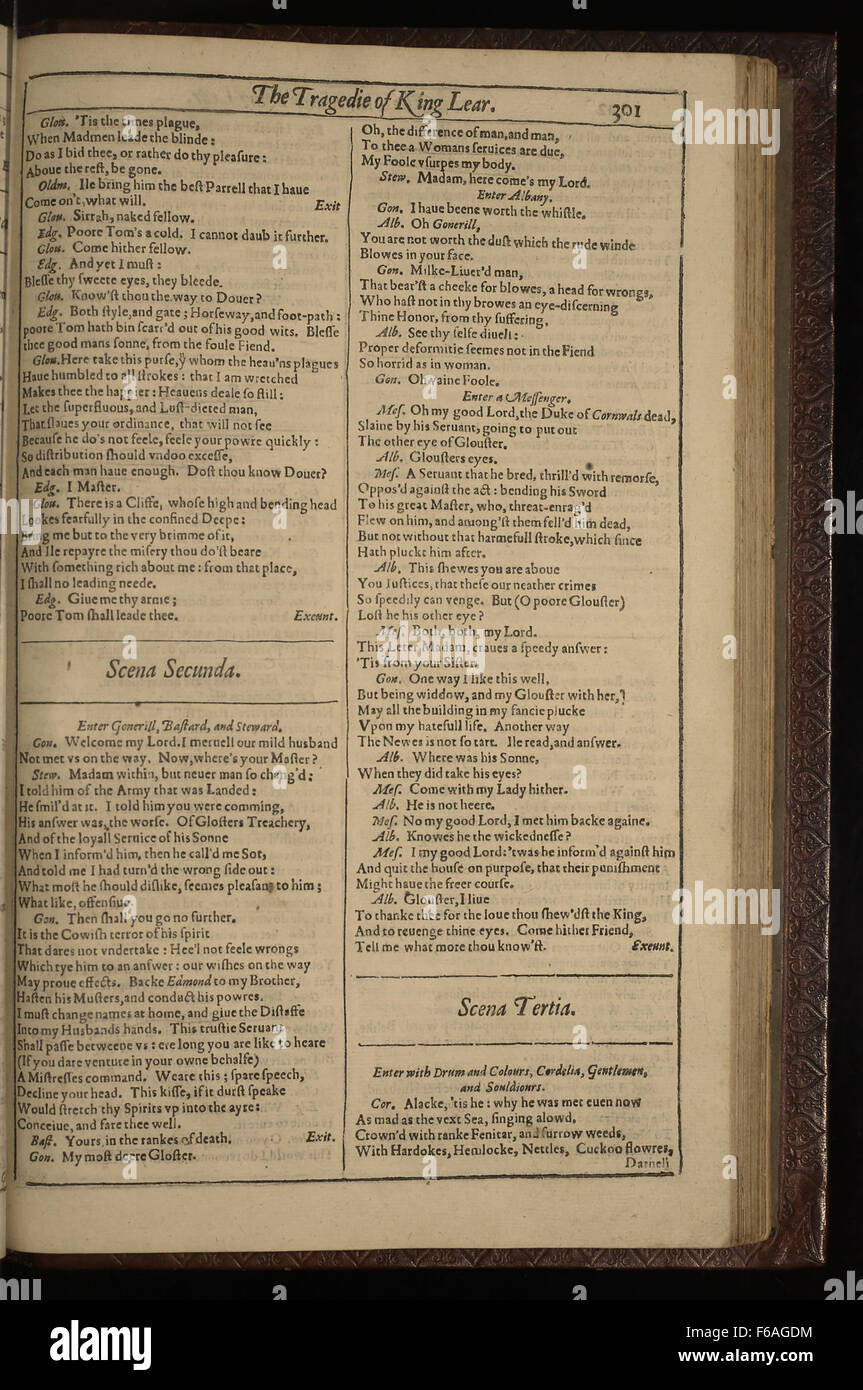 The Tragedie of King Lear. 301
Glou. 'Tis the times plague,
When Madmen leade the blinde:
Do as I bid thee, or rather do thy pleaſure:
Aboue the reſt, be gone.
Oldm. Ile bring him the beſt Parrell that I haue
Come on't, what will. Exit
Glou. Sirrah, naked fellow.
Edg. Poore Tom's a cold. I cannot daub it further.
Glou. Come hither fellow.
Edg. And yet I muſt:
Bleſſe thy ſweete eyes, they bleede.
Glou. Know'ſt thou the way to Douer?
Edg. Both ſtyle, and gate; Horſeway, and foot-path:
poore Tom hath bin ſcarr'd out of his good wits. Bleſſe
thee good mans ſonne, from the foule Fiend.
Glou. Here take this purſe, yͧ whom the heau'ns plagues
Haue humbled to all ſtrokes: that I am wretched
Makes thee the happier: Heauens deale ſo ſtill:
Let the ſuperfluous, and Luſt-dieted man,
That ſlaues your ordinance, that will not ſee
Becauſe he do's not feele, feele your powre quickly:
So diſtribution ſhould vndoo exceſſe,
And each man haue enough. Doſt thou know Douer?
Edg. I Maſter.
Glou. There is a Cliffe, whoſe high and bending head
Lookes fearfully in the confined Deepe:
Bring me but to the very brimme of it,
And Ile repayre the miſery thou do'ſt beare
With ſomething rich about me: from that place,
I ſhall no leading neede.
Edg. Giue me thy arme;
Poore Tom ſhall leade thee. Exeunt.
Scena Secunda.
Enter Gonerill, Baſtard, and Steward.
Gon. Welcome my Lord. I meruell our mild husband
Not met vs on the way. Now, where's your Maſter?
Stew. Madam within, but neuer man ſo chang'd:
I told him of the Army that was Landed:
He ſmil'd at it. I told him you were comming,
His anſwer was, the worſe. Of Gloſters Treachery,
And of the loyall Seruice of his Sonne
When I inform'd him, then he call'd me Sot,
And told me I had turn'd the wrong ſide out:
What moſt he ſhould diſlike, ſeemes pleaſant to him;
What like, offenſiue.
Gon. Then ſhall you go no further.
It is the Cowiſh terror of his ſpirit
That dares not vndertake: Hee'l not feele wrongs
Which tye him to an anſwer: our wiſhes on the way
May proue effects. Backe Edmond to my Brother,
Haſten his Muſters, and conduct his powres.
I muſt change names at home, and giue the Diſtaffe
Into my Husbands hands. This truſtie Seruant
Shall paſſe betweene vs: ere long you are like to heare
(If you dare venture in your owne behalfe)
A Miſtreſſes command. Weare this; ſpare ſpeech,
Decline your head. This kiſſe, if it durſt ſpeake
Would ſtretch thy Spirits vp into the ayre:
Conceiue, and fare thee well.
Baſt. Yours in the rankes of death. Exit.
Gon. My moſt deere Gloſter.
Oh, the difference of man, and man,
To thee a Womans ſeruices are due,
My Foole vſurpes my body.
Stew. Madam, here come's my Lord.
Enter Albany.
Gon. I haue beene worth the whiſtle.
Alb. Oh Gonerill,
You are not worth the duſt which the rude winde
Blowes in your face.
Gon. Milke-Liuer'd man,
That bear'ſt a cheeke for blowes, a head for wrongs,
Who haſt not in thy browes an eye-diſcerning
Thine Honor, from thy ſuffering.
Alb. See thy ſelfe diuell:
Proper deformitie ſeemes not in the Fiend
So horrid as in woman.
Gon. Oh vaine Foole.
Enter a Meſſenger.
Meſ. Oh my good Lord, the Duke of Cornwals dead,
Slaine by his Seruant, going to put out
The other eye of Glouſter.
Alb. Glouſters eyes.
Meſ. A Seruant that he bred, thrill'd with remorſe,
Oppos'd againſt the act: bending his Sword
To his great Maſter, who, threat-enrag'd
Flew on him, and among'ſt them fell'd him dead,
But not without that harmefull ſtroke, which ſince
Hath pluckt him after.
Alb. This ſhewes you are aboue
You Iuſtices, that theſe our neather crimes
So ſpeedily can venge. But (O poore Glouſter)
Loſt he his other eye?
Meſ. Both, both, my Lord.
This Leter Madam, craues a ſpeedy anſwer:
'Tis from your Siſter.
Gon. One way I like this well,
But being widdow, and my Glouſter with her,
May all the building in my fancie plucke
Vpon my hatefull life. Another way
The Newes is not ſo tart. Ile read, and anſwer.
Alb. Where was his Sonne,
When they did take his eyes?
Meſ. Come with my Lady hither.
Alb. He is not heere.
Meſ. No my good Lord, I met him backe againe.
Alb. Knowes he the wickedneſſe?
Meſ. I my good Lord: 'twas he inform'd againſt him
And quit the houſe on purpoſe, that their puniſhment
Might haue the freer courſe.
Alb. Glouſter, I liue
To thanke thee for the loue thou ſhew'dſt the King,
And to reuenge thine eyes. Come hither Friend,
Tell me what more thou know'ſt. Exeunt.
Scena Tertia.
Enter with Drum and Colours, Cordelia, Gentlemen,
and Souldiours.
Cor. Alacke, 'tis he: why he was met euen now
As mad as the vext Sea, ſinging alowd.
Crown'd with ranke Fenitar, and furrow weeds,
With Hardokes, Hemlocke, Nettles, Cuckoo flowres,
Darnell
alamy
Image ID: F6AGDM
www.alamy.com